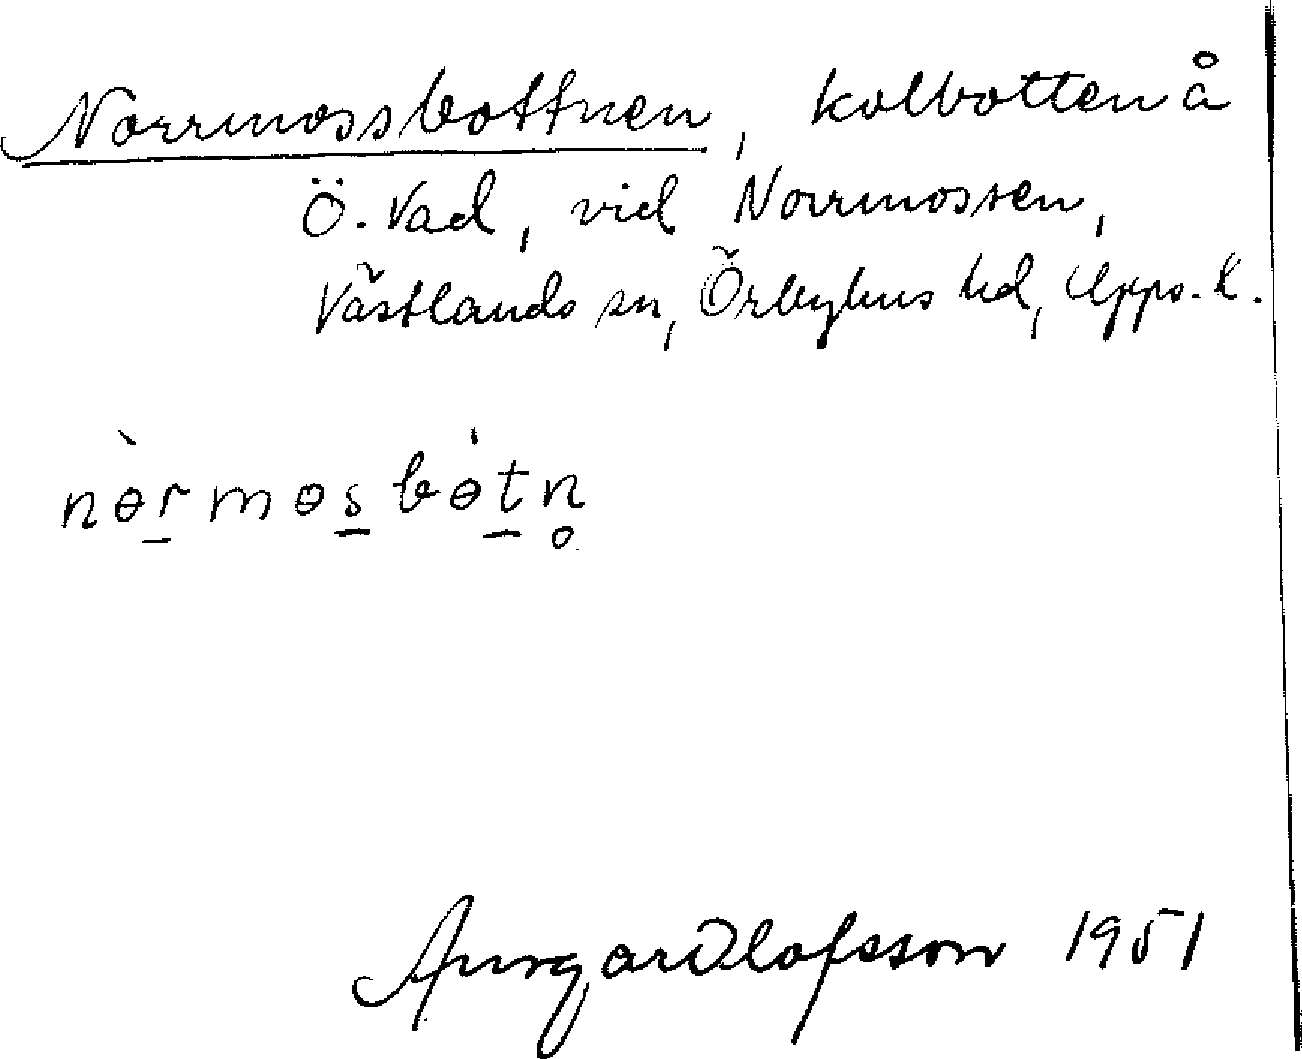 Norrmossbottnen, kolbotten å
Ö. Vad, vid Norrmossen,
Västlands sn, Örbyhus hd, Upps. l.
nɵ̀rmɵs̲bɵ́t̲n̥
Olofsson 1951